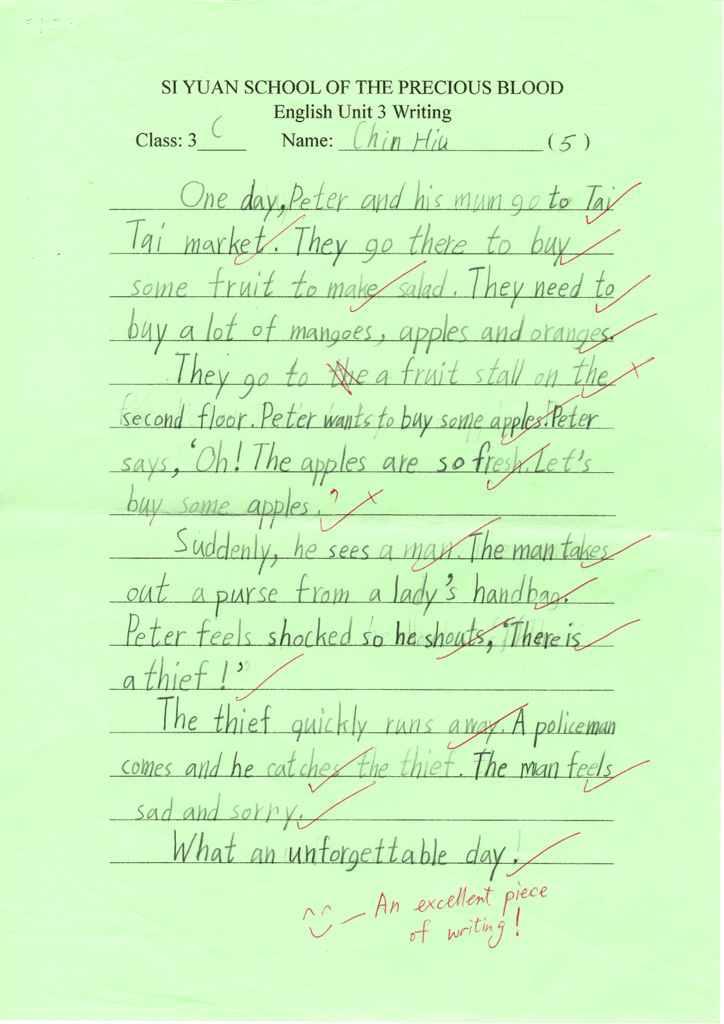 SI YUAN SCHOOL OF THE PRECIOUS BLOOD
English Unit 3 Writing
Class: 3 C Name: Chin Hiu ( 5 )
One day, Peter and his mum go to Tai
Tai market. They go there to buy
some fruit to make salad. They need to
buy a lot of mangoes, apples and oranges.
They go to the a fruit stall on the
second floor. Peter wants to buy some apples. Peter
says, 'Oh! The apples are so fresh. Let's
buy some apples.'
Suddenly, he sees a man. The man takes
out a purse from a lady's handbag.
Peter feels shocked so he shouts, 'There is
a thief!'
The thief quickly runs away. A policeman
comes and he catches the thief. The man feels
sad and sorry.
What an unforgettable day!
An excellent piece
of writing!